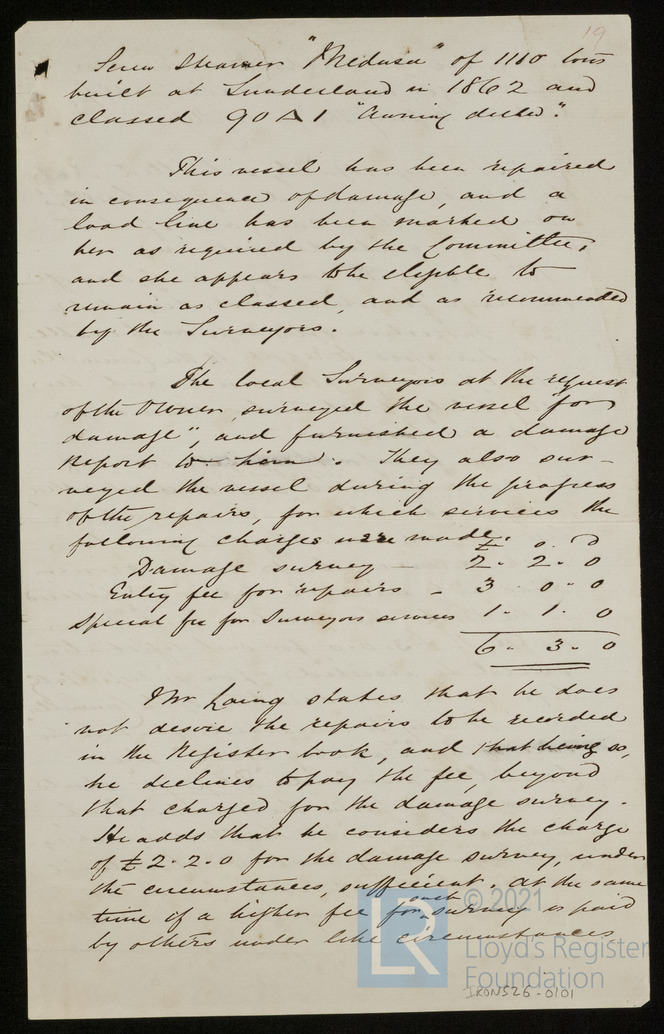 19
Screw Steamer "Medusa" of 1110 tons
built at Sunderland in 1862 and
classed 90A1 "Awning decked".
This vessel has been repaired
in consequence of damage, and a
load line has been marked on
her as required by the Committee,
and she appears to be eligible to
remain as classed, and as recommended
by the Surveyors.
The local Surveyors at the request
of the Owner, surveyed the vessel "for
damage", and furnished a damage
Report to him. They also sur-
veyed the vessel during the progress
of the repairs, for which services the
following charges were made.
£ s. d
Damage survey — 2. 2. 0
Entry fee for repairs - 3. 0. 0
Special fee for Surveyors services 1. 1. 0
6. 3. 0
Mr Laing states that he does
not desire the repairs to be recorded
in the Register book, and that being so,
he declines to pay the fee, beyond
that charged for the damage survey.
He adds that he considers the charge
of £2.2.0 for the damage survey, under
the circumstances, sufficient. At the same
time if a higher fee for such survey is paid
by others under like circumstances
LR
© 2021
Lloyd's Register
Foundation
IRON526-0101